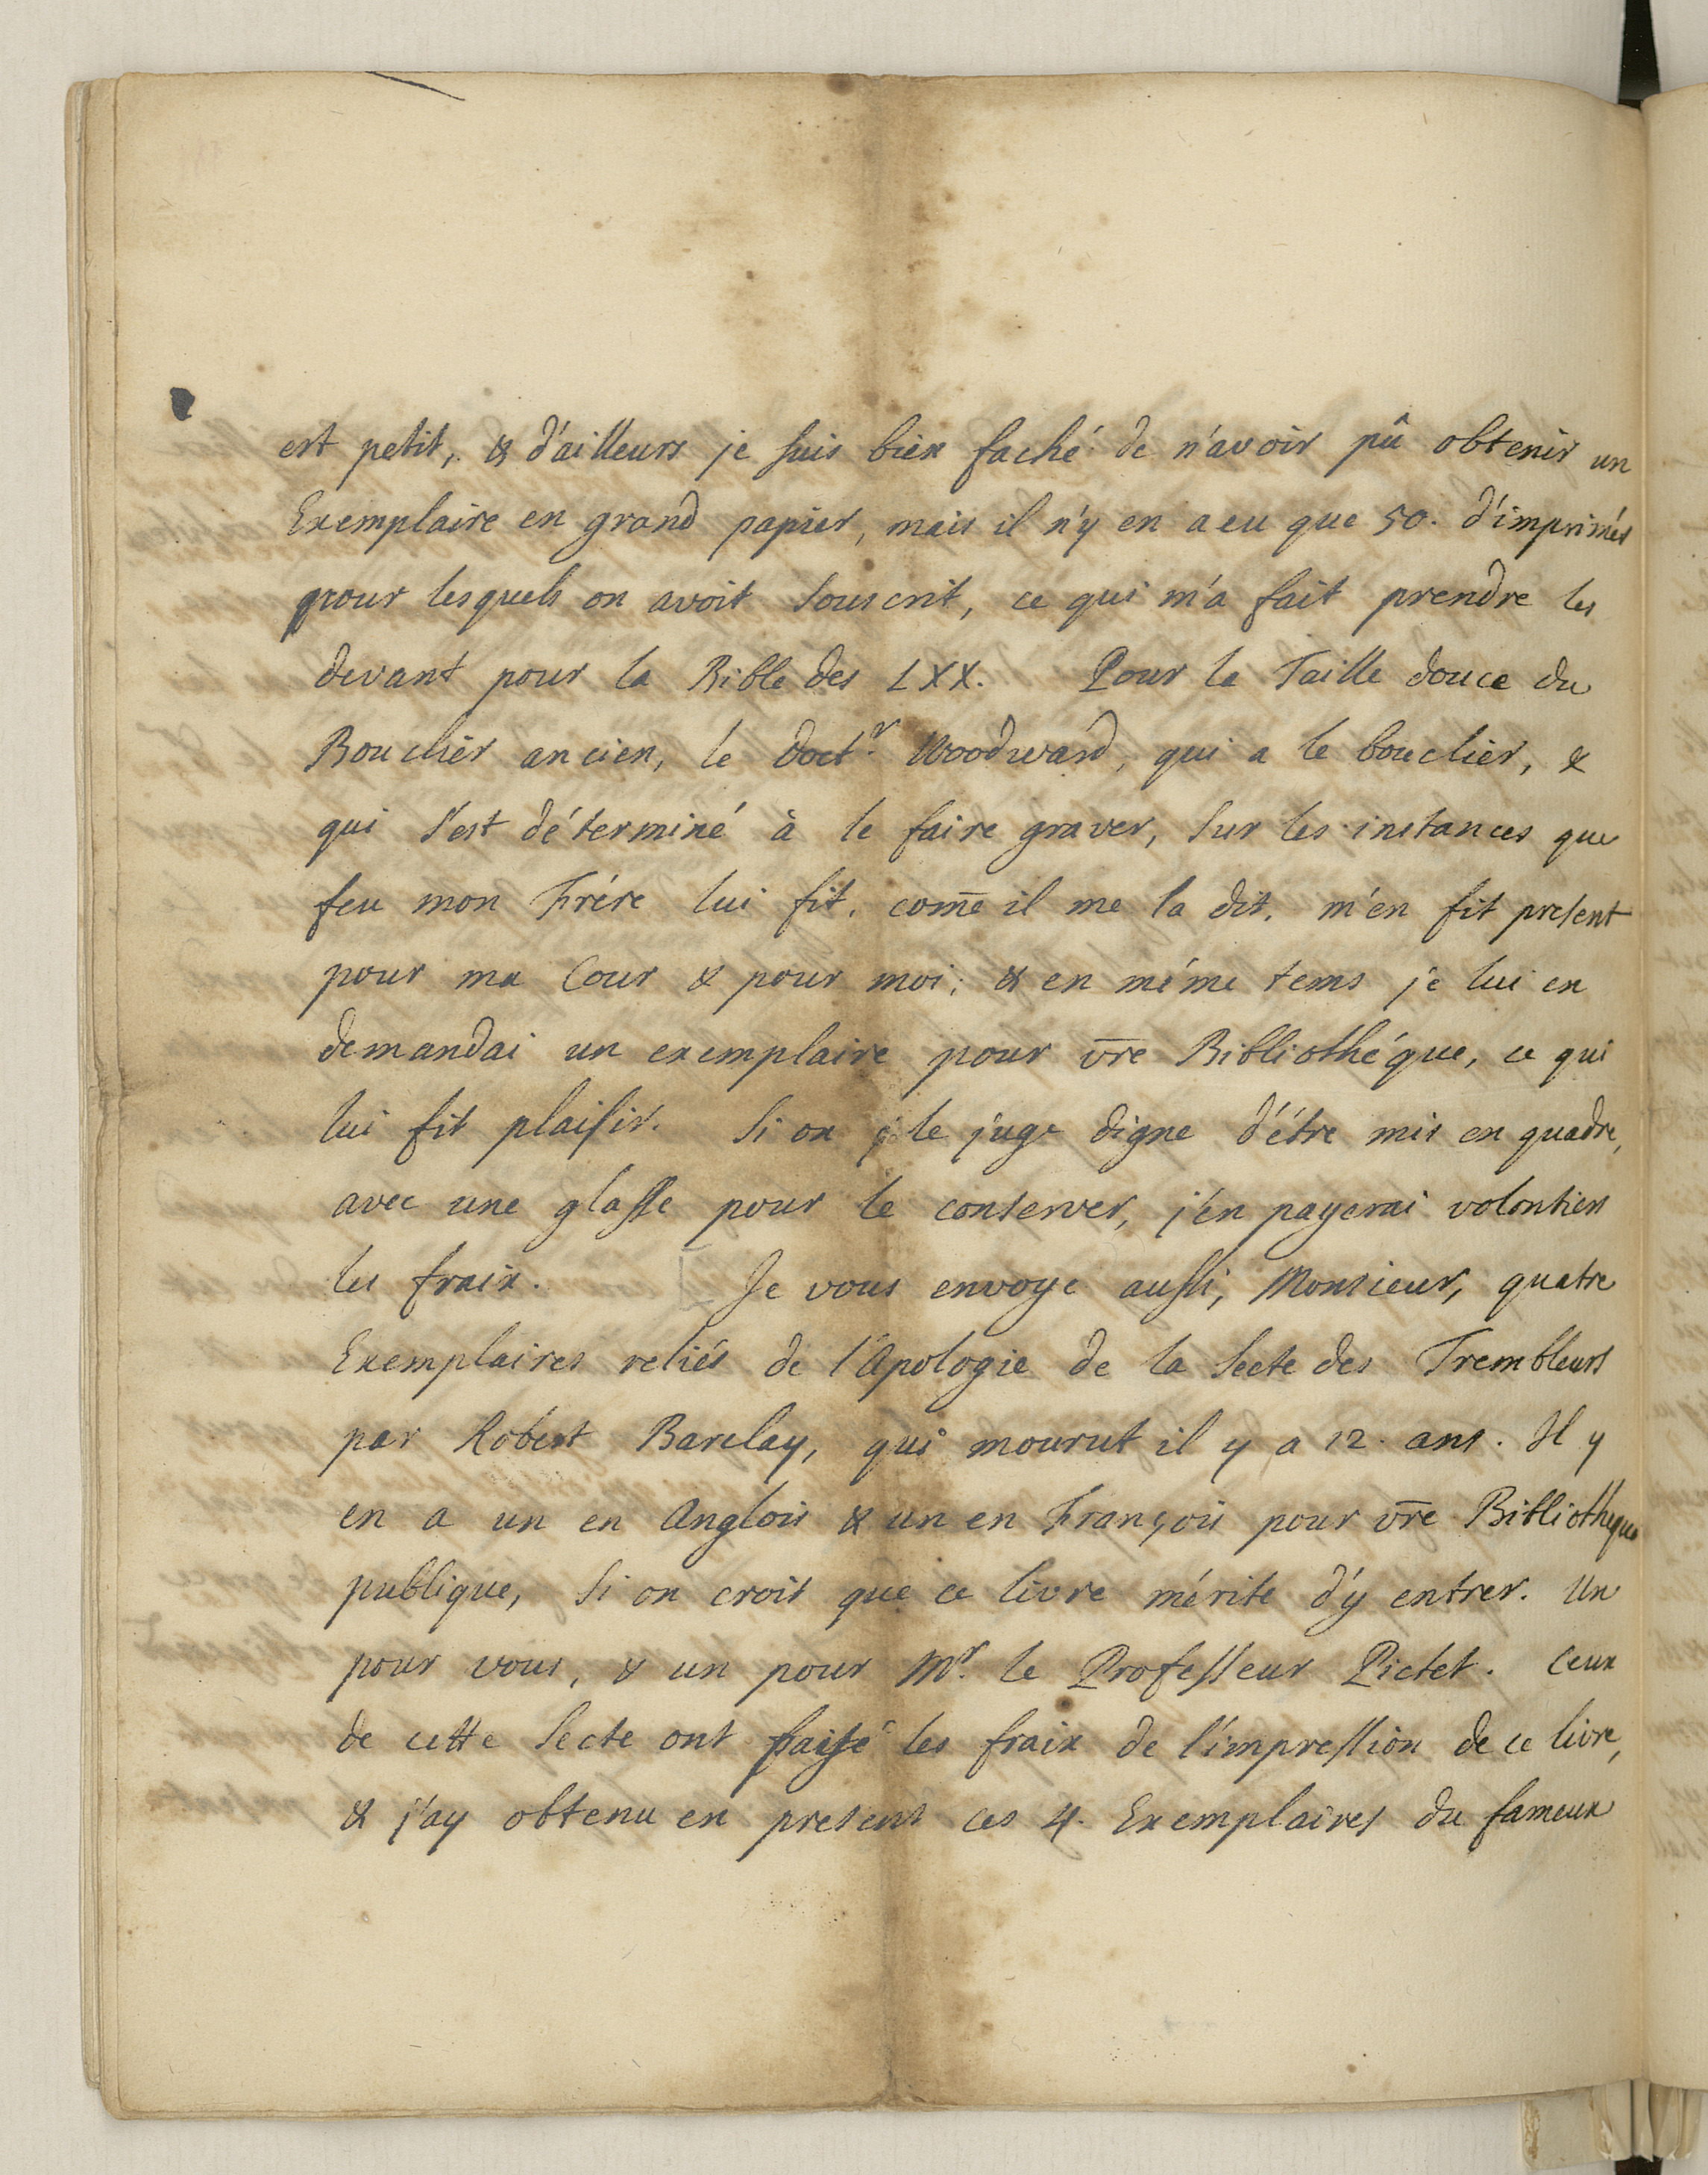 est petit, & d'ailleurs je suis bien faché de n'avoir pû obtenir un
Exemplaire en grand papier, mais il n'y en a eu que 50. d'imprimés
pour lesquels on avoit souscrit, ce qui m'a fait prendre les
devant pour la Bible des LXX. Pour la Taille douce du
Bouclier ancien, le doctr. Woodward, qui a le bouclier, &
qui s'est déterminé à le faire graver, sur les instances que
feu mon Frére lui fit, com̄e il me la dit, m'en fit present
pour ma Cour & pour moi; & en méme tems je lui en
demandai un exemplaire pour vr̄e Bibliothéque, ce qui
lui fit plaisir. Si on le juge digne d'étre mis en quadre,
avec une glasse pour le conserver, j'en payerai volontiers
les fraix. [ Je vous envoye aussi, Monsieur, quatre
Exemplaires reliés de l'Apologie de la Secte des Trembleurs
par Robert Barclay, qui mourut il y a 12. ans. Il y
en a un en Anglois & un en François pour vr̄e Bibliotheque
publique, si on croit que ce livre mérite d'y entrer. Un
pour vous, & un pour Mr. le Professeur Pictet. Ceux
de cette Secte ont les fraix de l'impression de ce livre,
& j'ay obtenu en present ces 4. Exemplaires du fameux